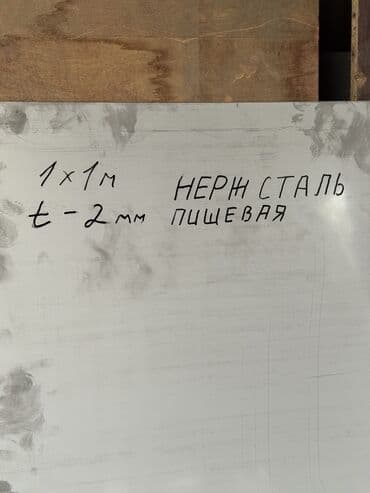 1 x 1 м НЕРЖ СТАЛЬ
t - 2 мм ПИЩЕВАЯ